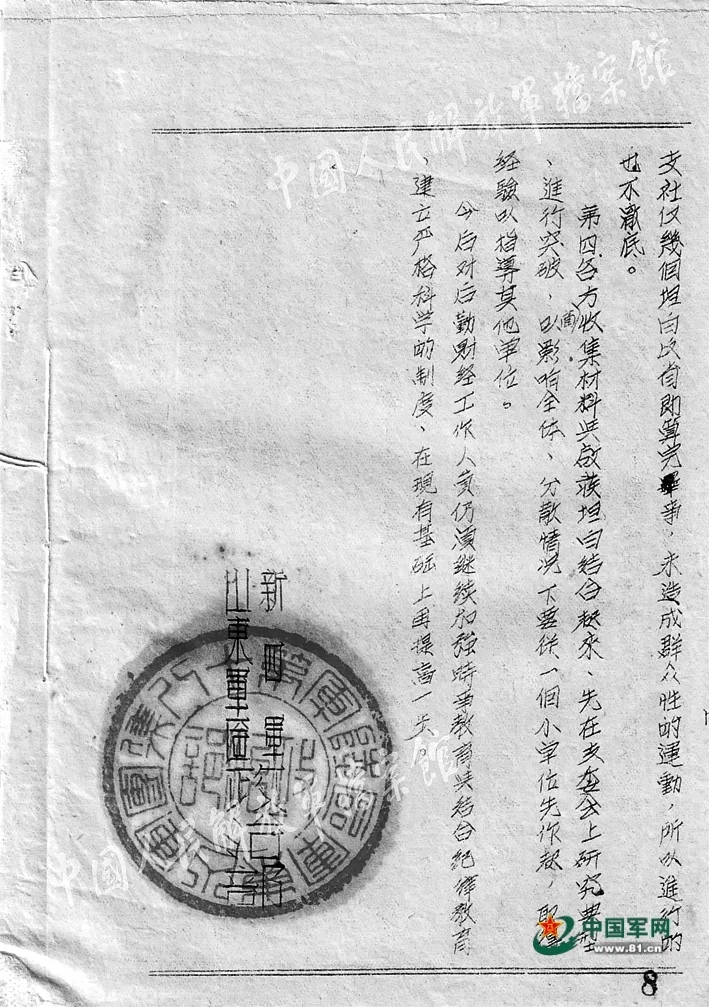 支社仅幾個坦白反省即算完畢事，未造成群众性的運動，所以進行的
也不澈底。
第四各方面收集材料与啟萊坦白結合起來、先在支委会上研究典型
、進行突破、以影响全体、分散情况下要從一個小单位先作起，取得
経驗以指導其他单位。
今后对后勤财経工作人員仍須継续加強時事教育与結合紀律教育
、建立严格科学的制度、在現有基础上再提高一步。
新四軍
山東軍區
中国人民解放軍檔案館
中国人民解放軍檔案館
中国军网
www.81.cn
8